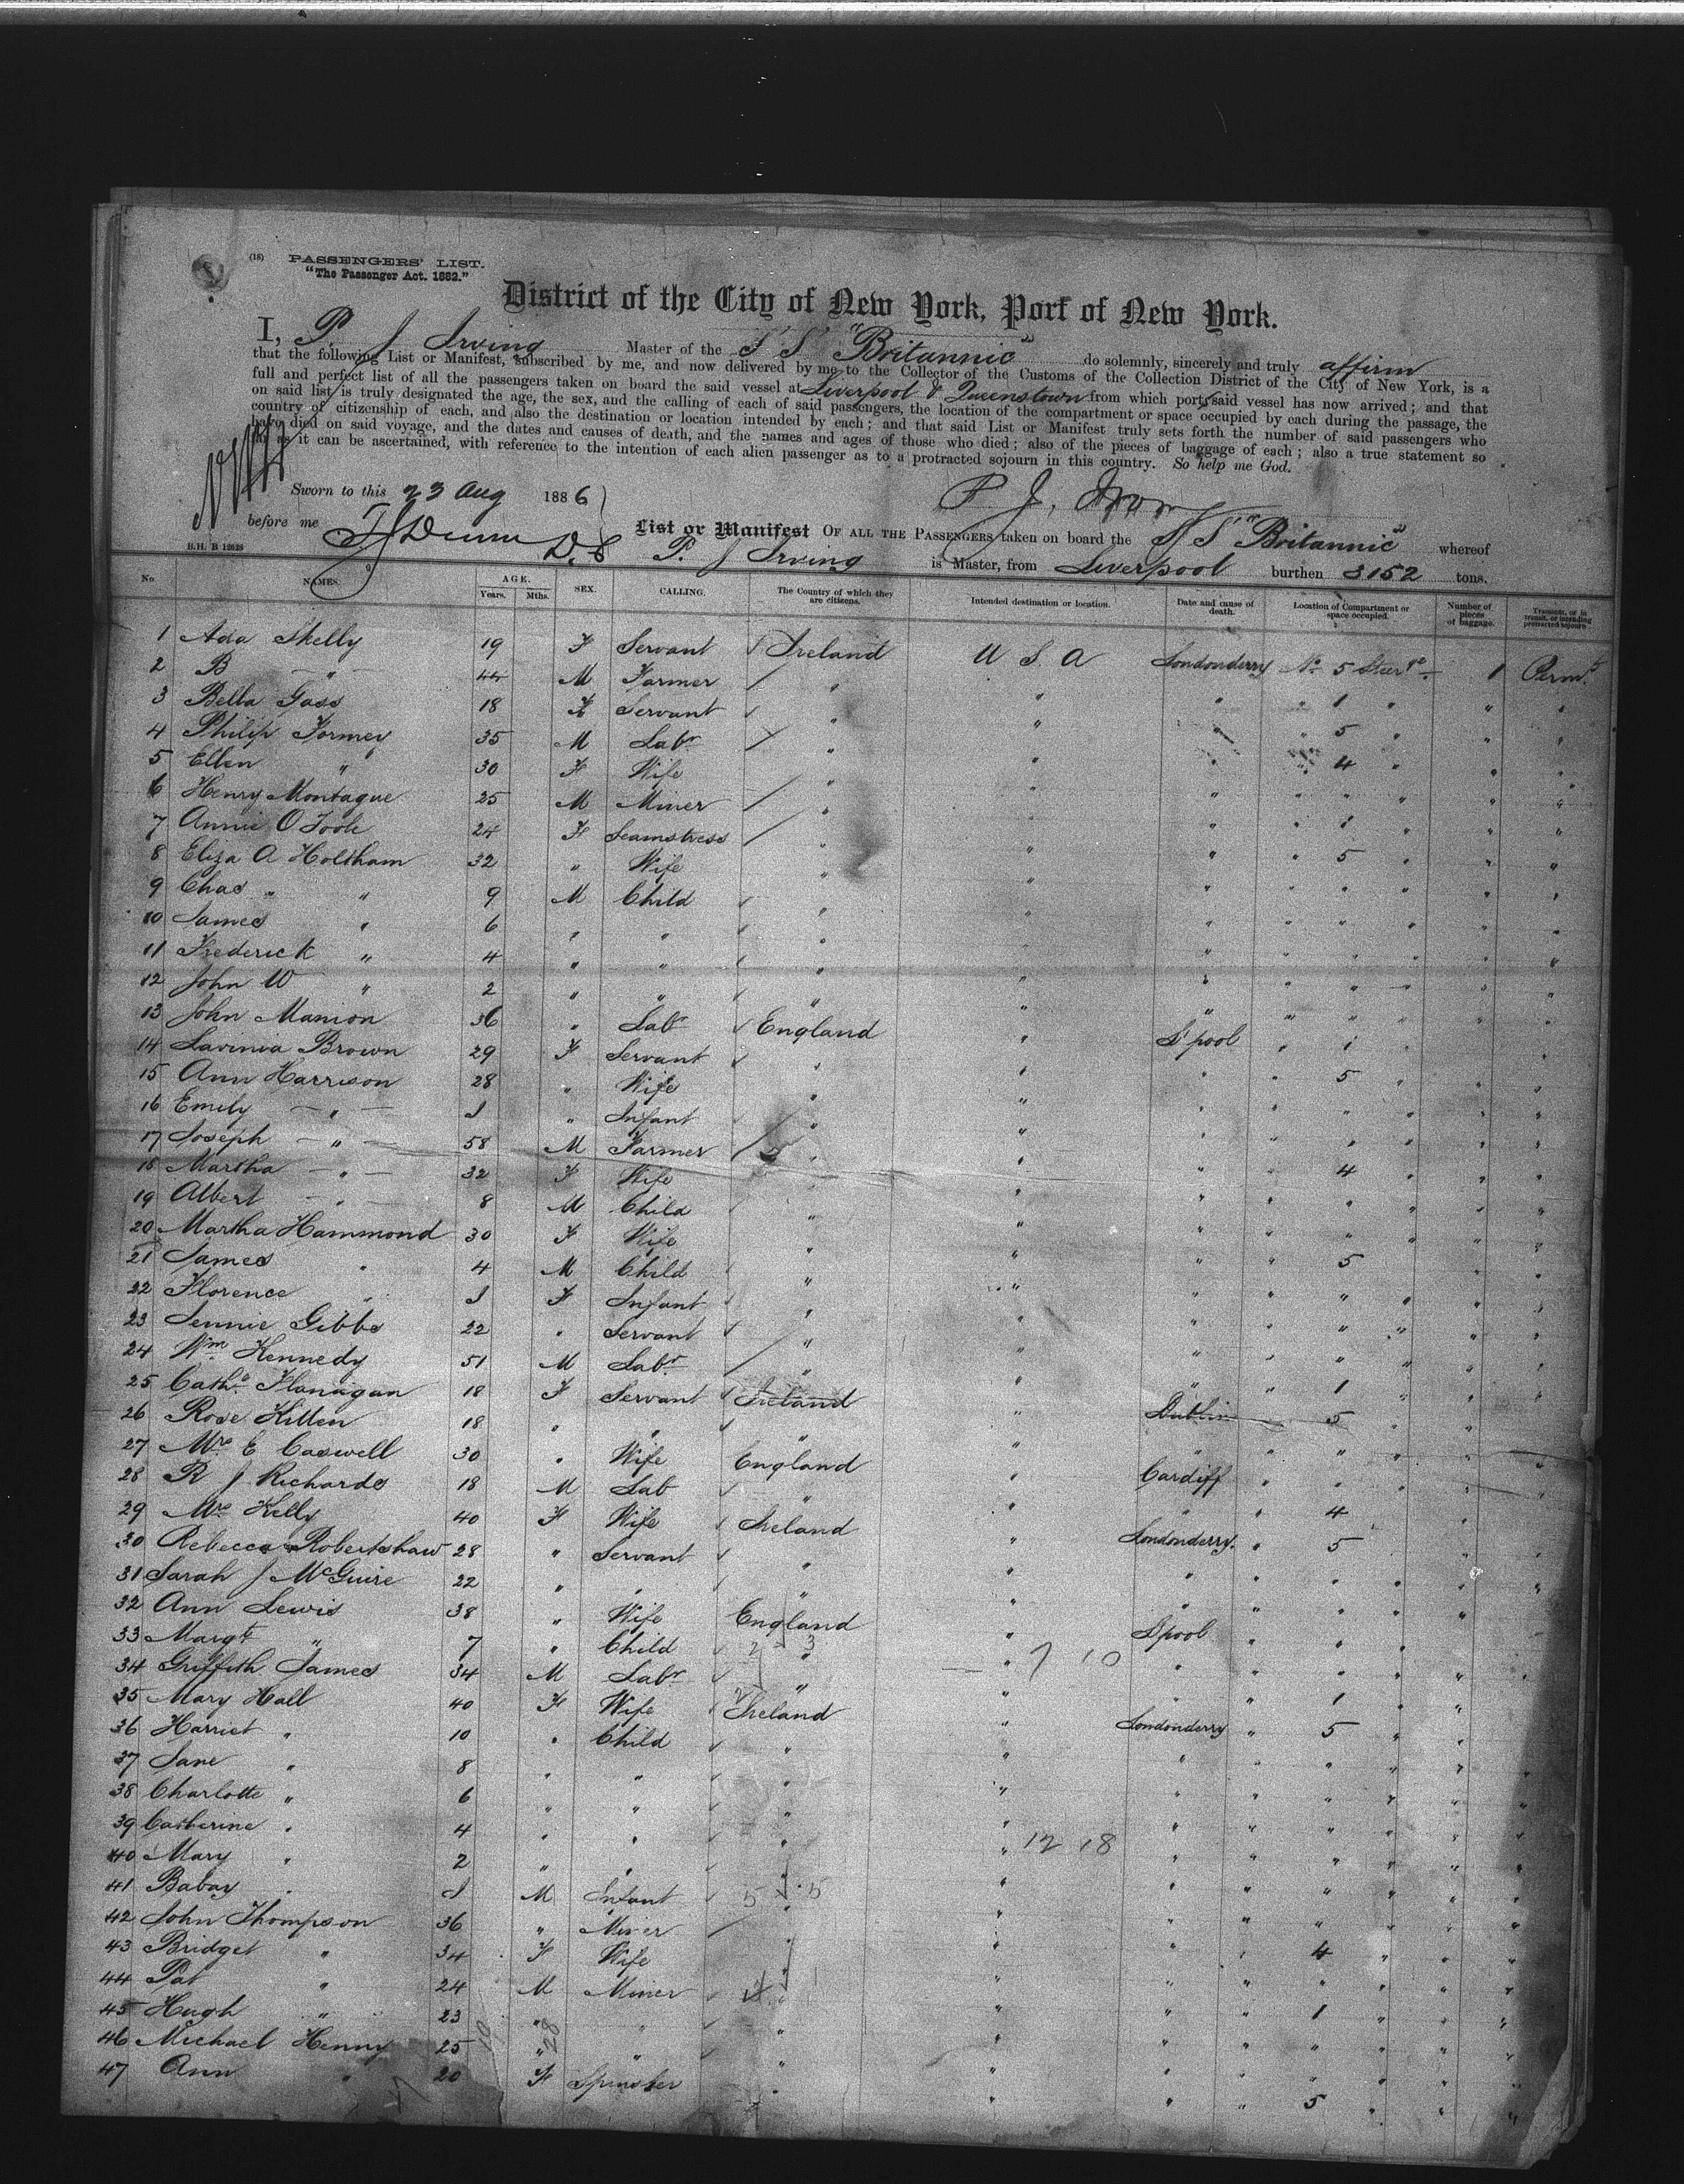 (18) PASSENGERS' LIST.
"The Passenger Act. 1882."
District of the City of New York, Port of New York.
I, P. J Irving Master of the S S "Britannic" do solemnly, sincerely and truly affirm
that the following List or Manifest, subscribed by me, and now delivered by me to the Collector of the Customs of the Collection District of the City of New York, is a
full and perfect list of all the passengers taken on board the said vessel at Liverpool & Queenstown from which ports said vessel has now arrived; and that
on said list is truly designated the age, the sex, and the calling of each of said passengers, the location of the compartment or space occupied by each during the passage, the
country of citizenship of each, and also the destination or location intended by each; and that said List or Manifest truly sets forth the number of said passengers who
have died on said voyage, and the dates and causes of death, and the names and ages of those who died; also of the pieces of baggage of each; also a true statement so
far as it can be ascertained, with reference to the intention of each alien passenger as to a protracted sojourn in this country. So help me God.
Sworn to this 23 Aug 1886
before me
P J.
B.H. B 12628
List or Manifest OF ALL THE PASSENGERS taken on board the S S "Britannic" whereof
P. J Irving is Master, from Liverpool burthen 3152 tons.
No NAMES. AGE. Years. Mths. SEX. CALLING. The Country of which they are citizens. Intended destination or location. Date and cause of death. Location of Compartment or space occupied. Number of pieces of baggage. Transient, or in transit, or intending protracted sojourn
1 Ada Skelly 19 F Servant Ireland U S. A Londonderry No 5 Steerge 1 Perm.
2 B " 44 M Farmer " " " " 1 " " "
3 Bella Gass 18 F Servant " " " " 5 " " "
4 Philip Formey 35 M Labr " " " " 4 " " "
5 Ellen " 30 F Wife " " " " " " " "
6 Henry Montague 25 M Miner " " " " 1 " " "
7 Annie O Toole 24 F Seamstress " " " " 5 " " "
8 Eliza A Holtham 32 " Wife " " " " " " " "
9 Chas " " 9 M Child " " " " " " " "
10 James " 6 " " " " " " " " " "
11 Frederick " 4 " " " " " " " " " "
12 John W " 2 " " " " " " " " " "
13 John Manion 36 " Labr England " L'pool " 1 " " "
14 Lavinia Brown 29 F Servant " " " " 5 " " "
15 Ann Harrison 28 " Wife " " " " " " " "
16 Emily " " Infant " " " " " " " "
17 Joseph " 58 M Farmer " " " " 4 " " "
18 Martha " 32 F Wife " " " " " " " "
19 Albert " 8 M Child " " " " " " " "
20 Martha Hammond 30 F Wife " " " " 5 " " "
21 James " 4 M Child " " " " " " " "
22 Florence " F Infant " " " " " " " "
23 Jennie Gibbs 22 " Servant " " " " " " " "
24 Wm Kennedy 51 M Labr " " " " 1 " " "
25 Cathe Flanagan 18 F Servant Ireland " Dublin " 5 " " "
26 Rose Killen 18 " " " " " " " " " "
27 Mrs E Caswell 30 " Wife England " Cardiff " " " " "
28 R J Richards 18 M Lab " " " " 4 " " "
29 Mrs Kelly 40 F Wife Ireland " Londonderry " 5 " " "
30 Rebecca Robertshaw 28 " Servant " " " " " " " "
31 Sarah J McGuire 22 " " " " " " " " " "
32 Ann Lewis 38 " Wife England " L'pool " " " " "
33 Margt " 7 " Child " " " " " " " "
34 Griffith James 34 M Labr " " " " 1 " " "
35 Mary Hall 40 F Wife Ireland " Londonderry " 5 " " "
36 Harriet " 10 " Child " " " " " " " "
37 Jane " 8 " " " " " " " " " "
38 Charlotte " 6 " " " " " " " " " "
39 Catherine " 4 " " " " " " " " " "
40 Mary " 2 " " " " " " " " " "
41 Babay " M Infant " " " " " " " "
42 John Thompson 36 " Miner " " " " 4 " " "
43 Bridget " 34 F Wife " " " " " " " "
44 Pat " 24 M Miner " " " " 1 " " "
45 Hugh " 23 " " " " " " " " " "
46 Michael Henny 25 " " " " " " " " " "
47 Ann " 20 F Spinster " " " " 5 " " "